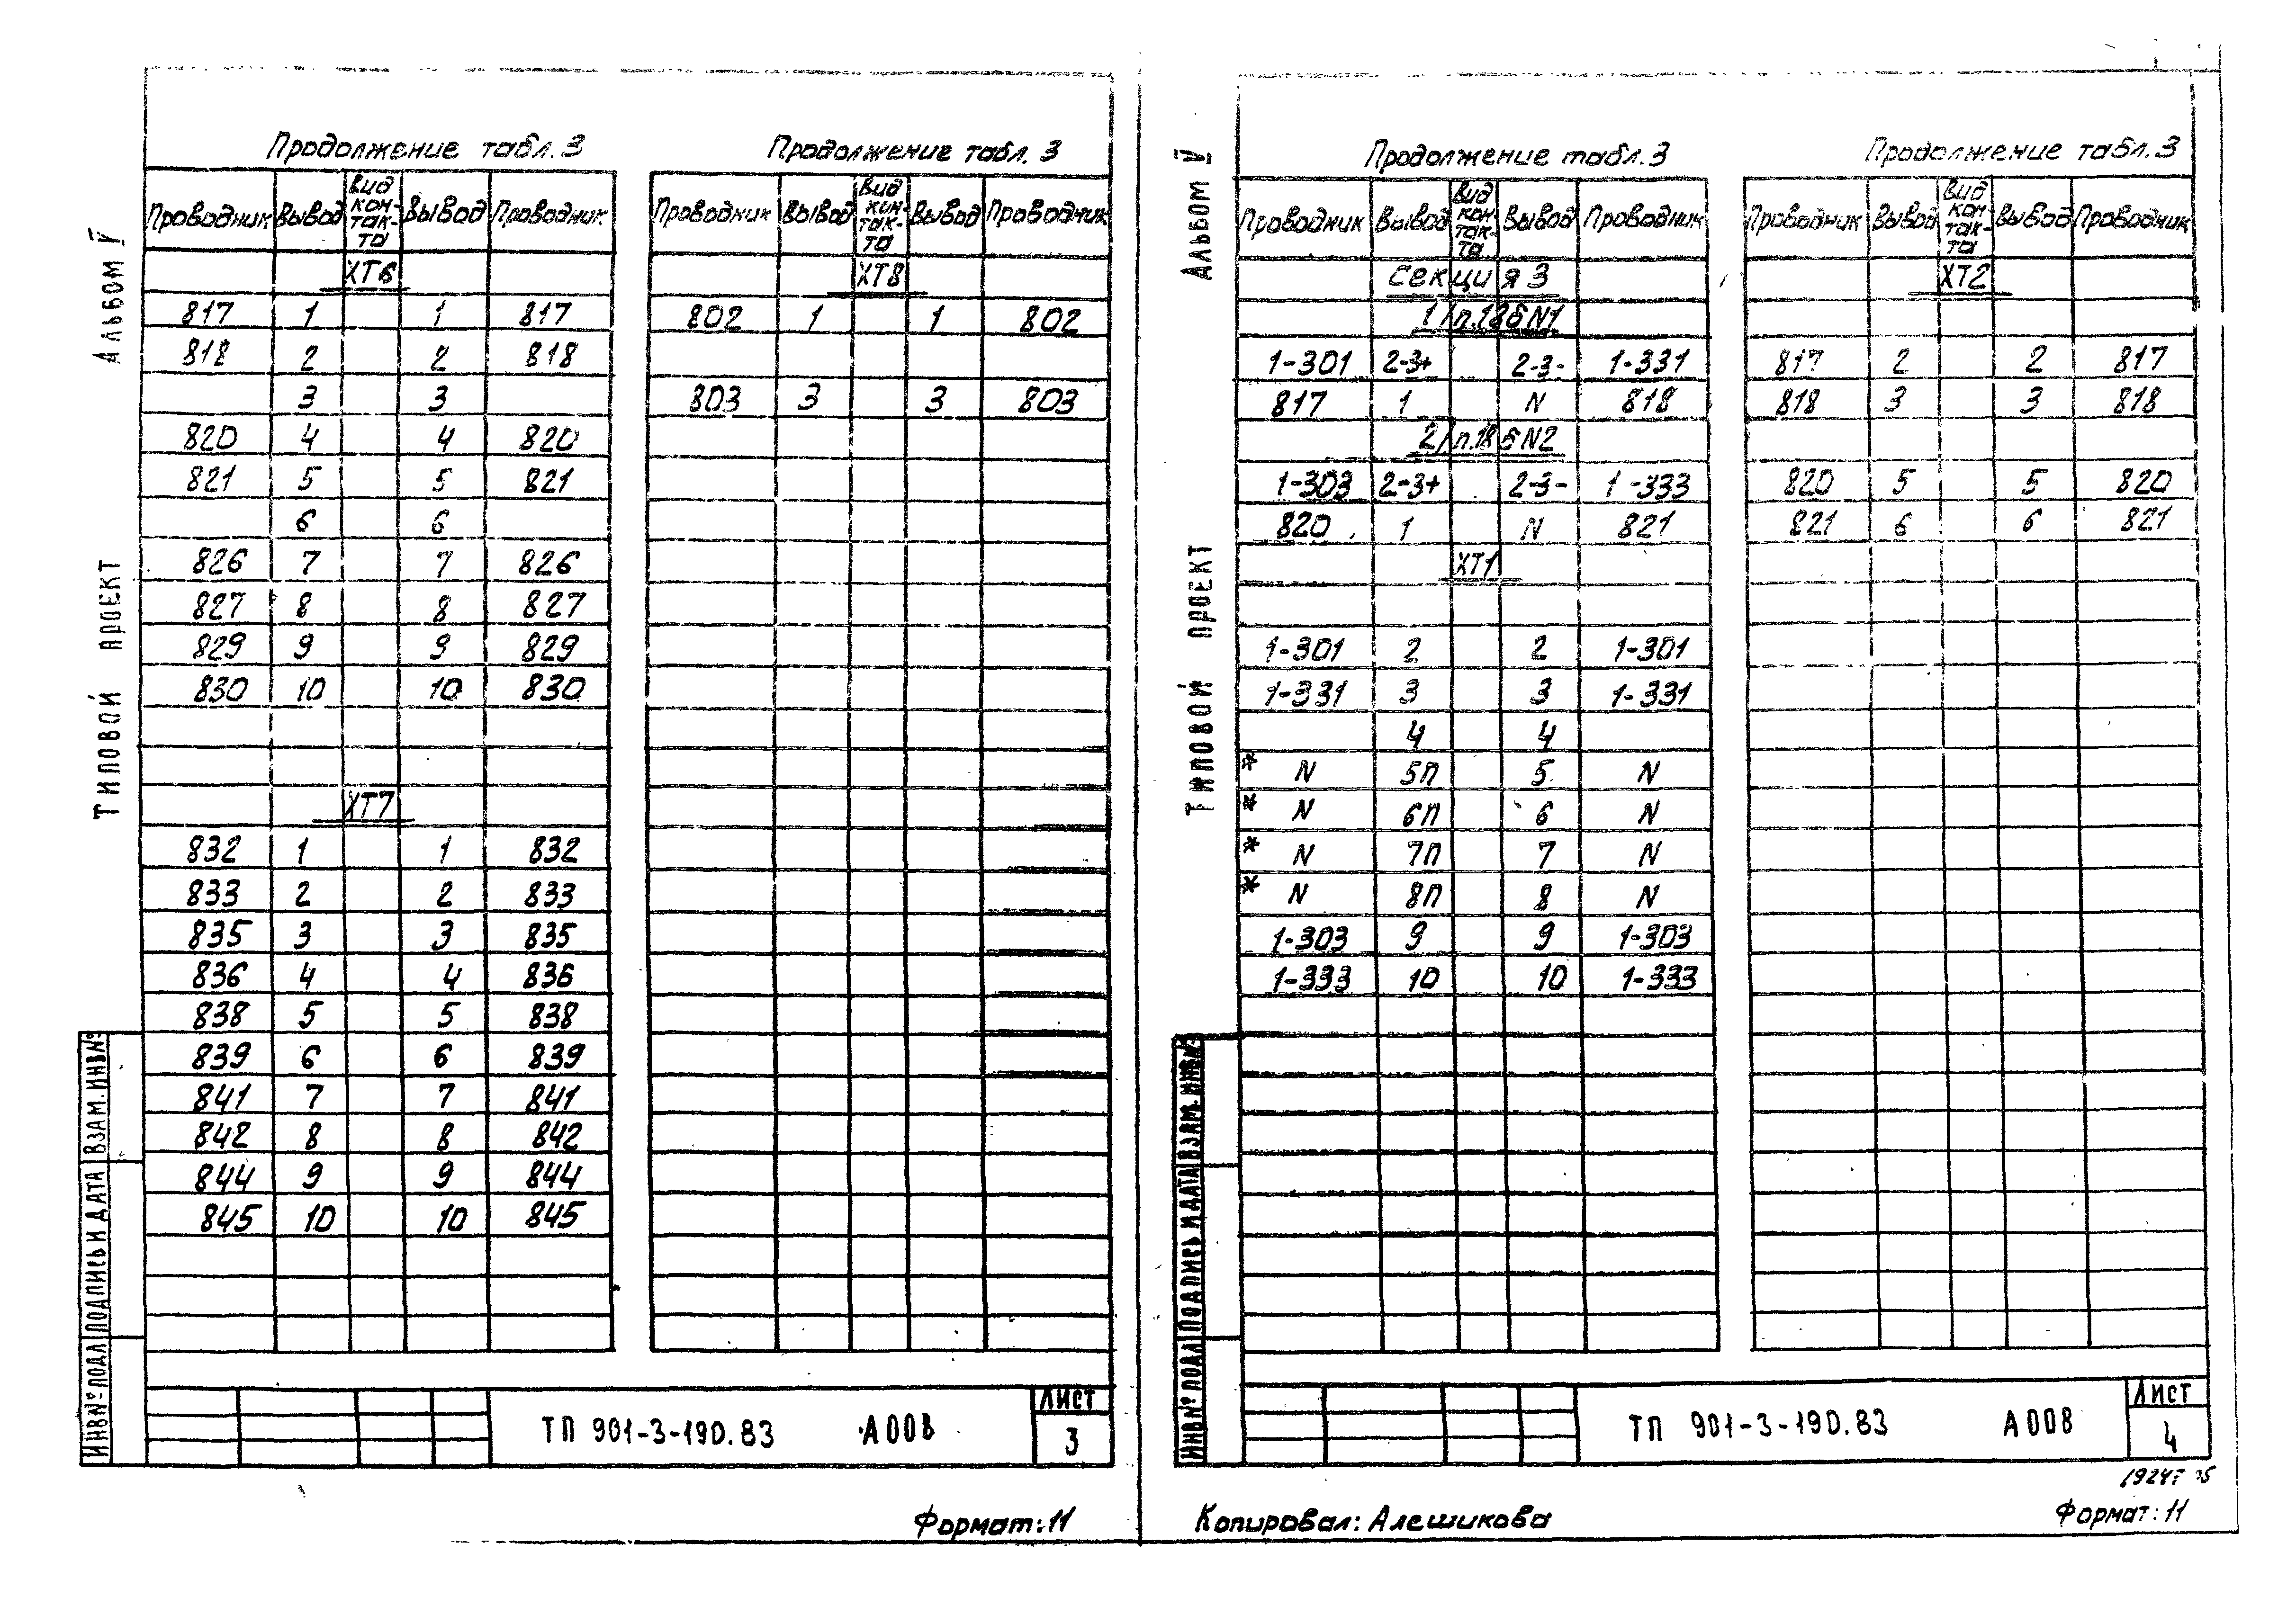 Альбом V
Типовой проект
Продолжение табл. 3
Проводник Вывод Вид контакта Вывод Проводник
ХТ6
817 1 1 817
818 2 2 818
3 3
820 4 4 820
821 5 5 821
6 6
826 7 7 826
827 8 8 827
829 9 9 829
830 10 10 830
ХТ7
832 1 1 832
833 2 2 833
835 3 3 835
836 4 4 836
838 5 5 838
839 6 6 839
841 7 7 841
842 8 8 842
844 9 9 844
845 10 10 845
Продолжение табл. 3
Проводник Вывод Вид контакта Вывод Проводник
ХТ8
802 1 1 802
803 3 3 803
ИНВ № ПОДЛ ПОДПИСЬ И ДАТА ВЗАМ. ИНВ №
ТП 901-3-190.83 А008
ЛИСТ
3
Формат: 11
Альбом V
Типовой проект
Продолжение табл. 3
Проводник Вывод Вид контакта Вывод Проводник
Секция 3
1/п.18б N1
1-301 2-3+ 2-3- 1-331
817 1 N 818
2/п.18б N2
1-303 2-3+ 2-3- 1-333
820 1 N 821
ХТ1
1-301 2 2 1-301
1-331 3 3 1-331
4 4
* N 5П 5 N
* N 6П 6 N
* N 7П 7 N
* N 8П 8 N
1-303 9 9 1-303
1-333 10 10 1-333
Продолжение табл. 3
Проводник Вывод Вид контакта Вывод Проводник
ХТ2
817 2 2 817
818 3 3 818
820 5 5 820
821 6 6 821
ИНВ № ПОДЛ ПОДПИСЬ И ДАТА ВЗАМ. ИНВ №
ТП 901-3-190.83 А008
ЛИСТ
4
Копировал: Алешикова
Формат: 11